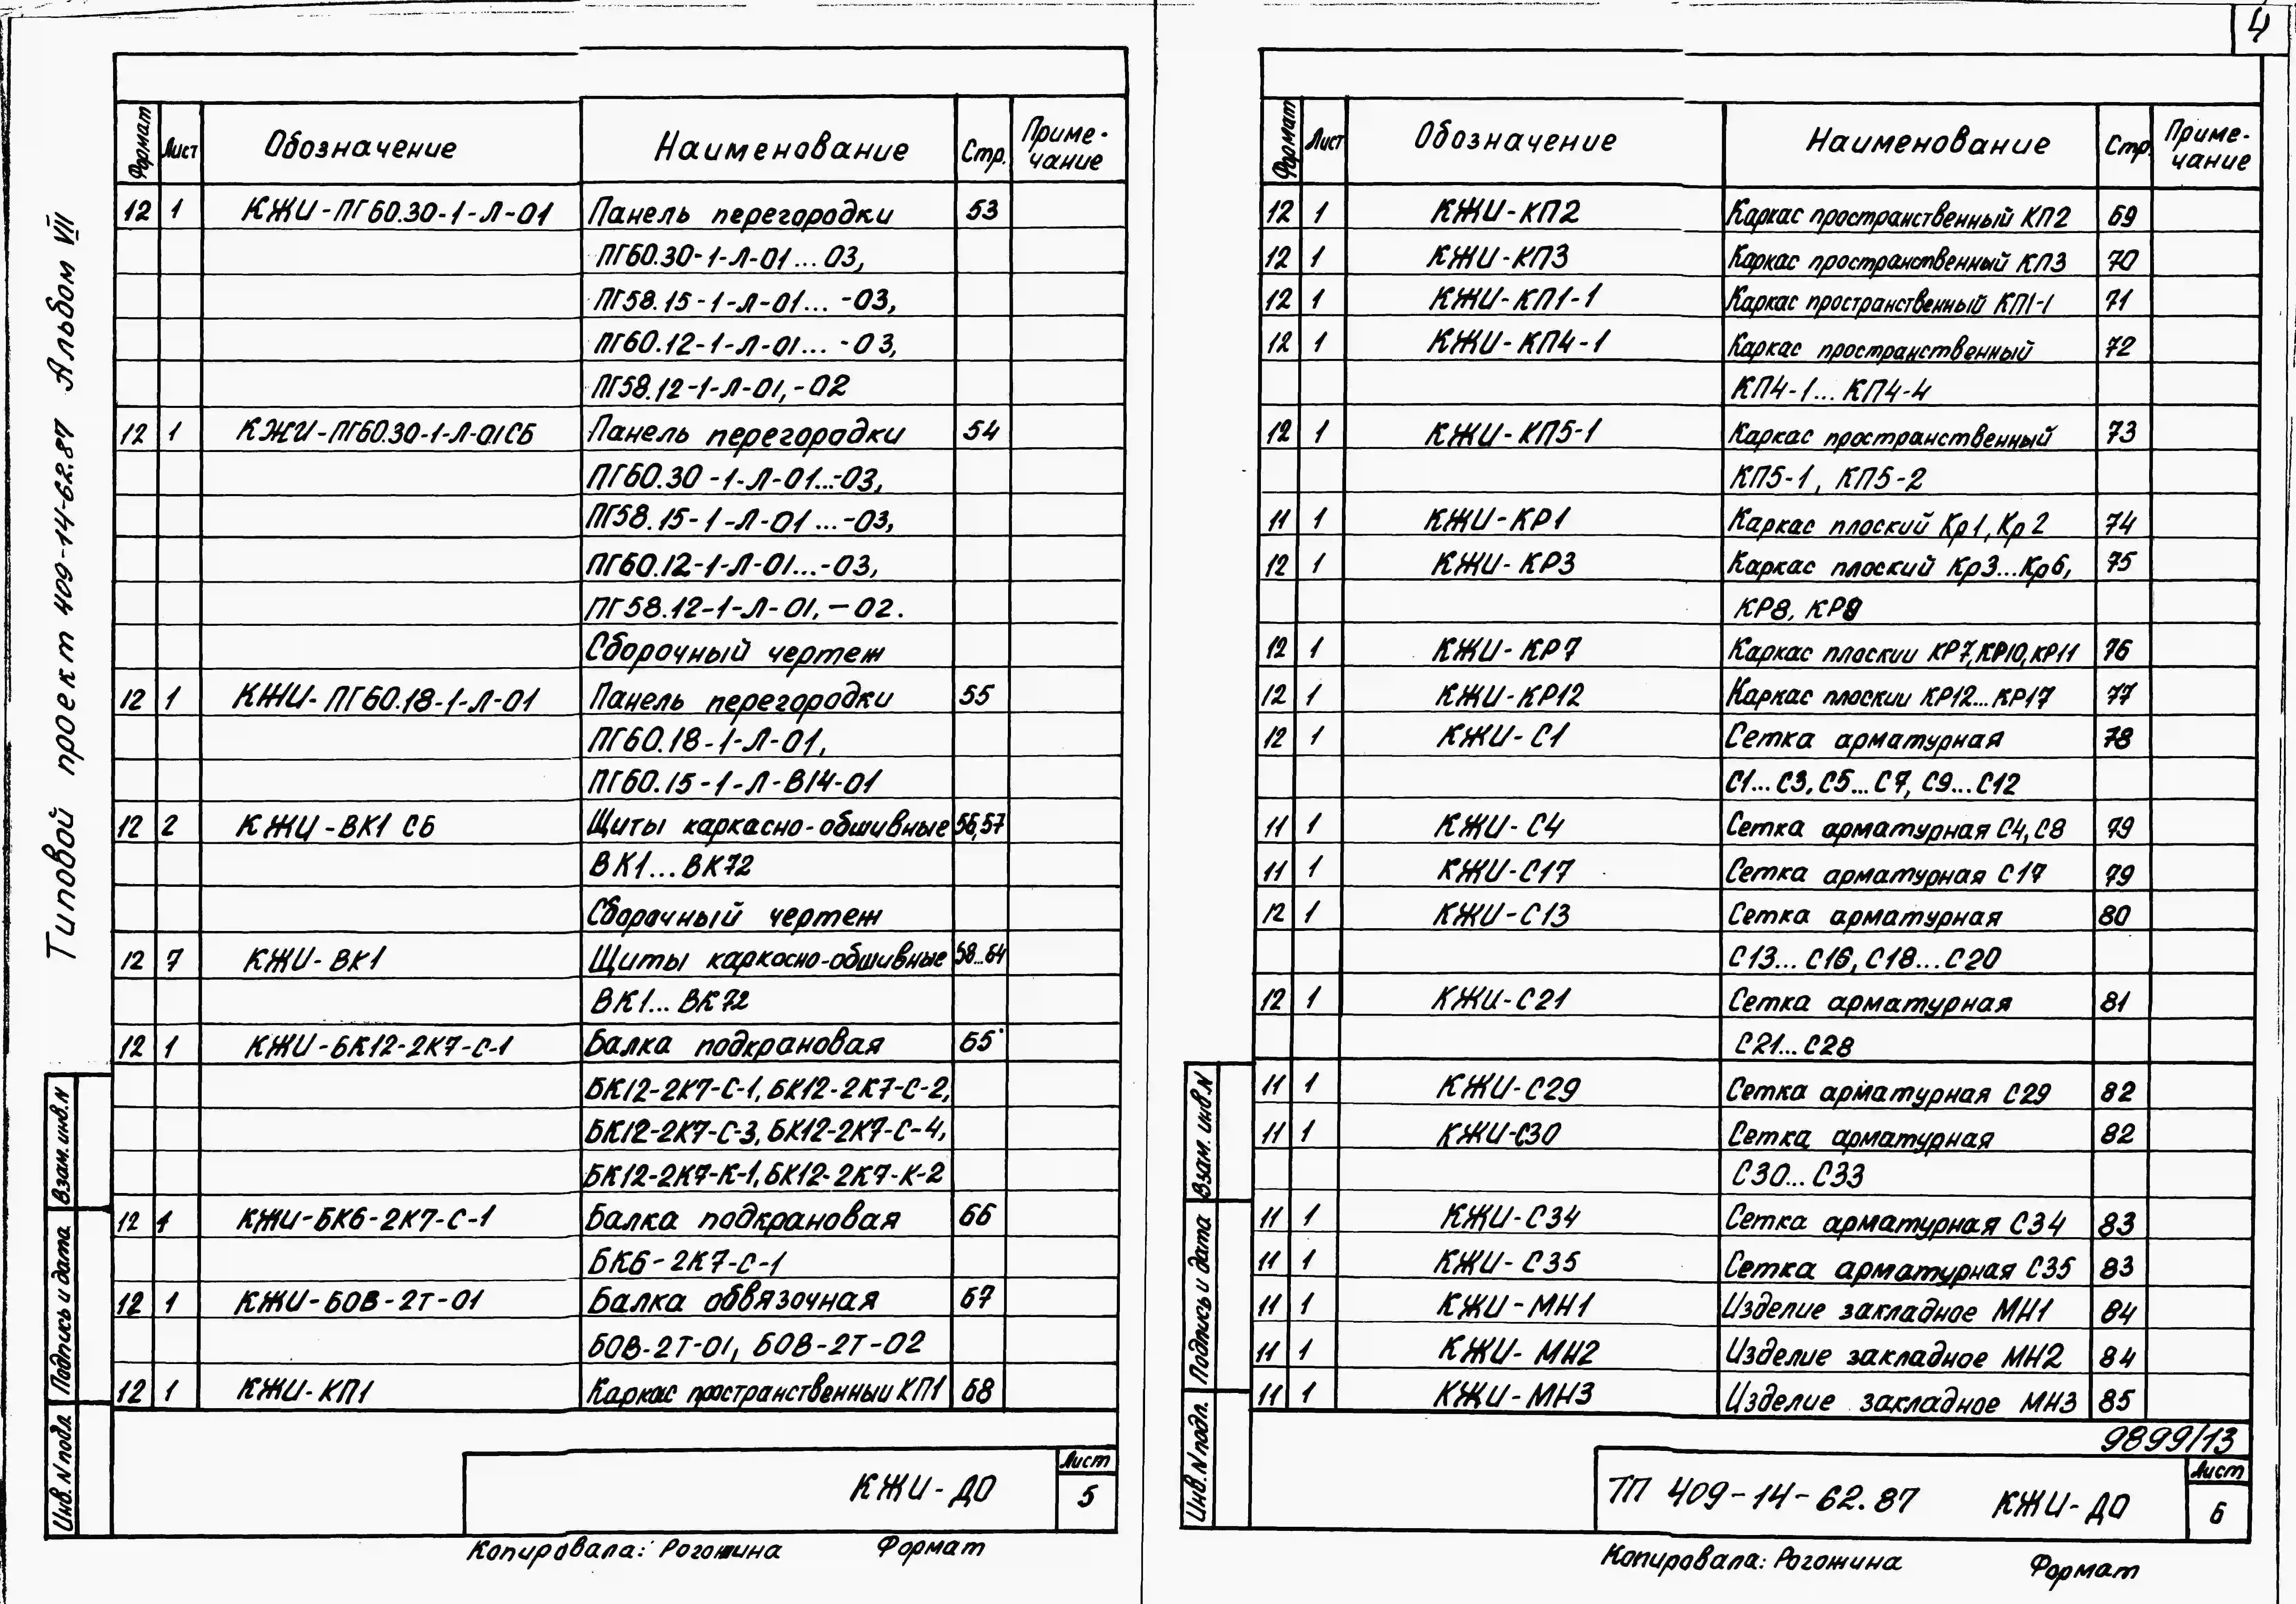 4
Типовой проект 409-14-62.87 Альбом VII
Формат Лист Обозначение Наименование Стр. Приме-
чание
12 1 КЖИ-ПГ60.30-1-Л-01 Панель перегородки 53
ПГ60.30-1-Л-01...03,
ПГ58.15-1-Л-01...-03,
ПГ60.12-1-Л-01...-03,
ПГ58.12-1-Л-01,-02
12 1 КЖИ-ПГ60.30-1-Л-01СБ Панель перегородки 54
ПГ60.30-1-Л-01...-03,
ПГ58.15-1-Л-01...-03,
ПГ60.12-1-Л-01...-03,
ПГ58.12-1-Л-01,-02.
Сборочный чертеж
12 1 КЖИ-ПГ60.18-1-Л-01 Панель перегородки 55
ПГ60.18-1-Л-01,
ПГ60.15-1-Л-В14-01
12 2 КЖИ-ВК1 СБ Щиты каркасно-обшивные 56,57
ВК1...ВК72
Сборочный чертеж
12 7 КЖИ-ВК1 Щиты каркасно-обшивные 58...64
ВК1...ВК72
12 1 КЖИ-БК12-2К7-С-1 Балка подкрановая 65
БК12-2К7-С-1, БК12-2К7-С-2,
БК12-2К7-С-3, БК12-2К7-С-4,
БК12-2К7-К-1, БК12-2К7-К-2
12 1 КЖИ-БК6-2К7-С-1 Балка подкрановая 66
БК6-2К7-С-1
12 1 КЖИ-БОВ-2Т-01 Балка обвязочная 67
БОВ-2Т-01, БОВ-2Т-02
12 1 КЖИ-КП1 Каркас пространственный КП1 68
Взам. инв.N
Подпись и дата
Инв. N подл.
КЖИ-ДО
Лист
5
Копировала: Рогожина Формат
Формат Лист Обозначение Наименование Стр. Приме-
чание
12 1 КЖИ-КП2 Каркас пространственный КП2 69
12 1 КЖИ-КП3 Каркас пространственный КП3 70
12 1 КЖИ-КП1-1 Каркас пространственный КП1-1 71
12 1 КЖИ-КП4-1 Каркас пространственный 72
КП4-1...КП4-4
12 1 КЖИ-КП5-1 Каркас пространственный 73
КП5-1, КП5-2
11 1 КЖИ-КР1 Каркас плоский Кр1, Кр2 74
12 1 КЖИ-КР3 Каркас плоский Кр3...Кр6, 75
КР8, КР9
12 1 КЖИ-КР7 Каркас плоскии КР7, КР10, КР11 76
12 1 КЖИ-КР12 Каркас плоскии КР12...КР17 77
12 1 КЖИ-С1 Сетка арматурная 78
С1...С3, С5...С7, С9...С12
11 1 КЖИ-С4 Сетка арматурная С4, С8 79
11 1 КЖИ-С17 Сетка арматурная С17 79
12 1 КЖИ-С13 Сетка арматурная 80
С13...С16, С18...С20
12 1 КЖИ-С21 Сетка арматурная 81
С21...С28
11 1 КЖИ-С29 Сетка арматурная С29 82
11 1 КЖИ-С30 Сетка арматурная 82
С30...С33
11 1 КЖИ-С34 Сетка арматурная С34 83
11 1 КЖИ-С35 Сетка арматурная С35 83
11 1 КЖИ-МН1 Изделие закладное МН1 84
11 1 КЖИ-МН2 Изделие закладное МН2 84
11 1 КЖИ-МН3 Изделие закладное МН3 85
Взам. инв.N
Подпись и дата
Инв. N подл.
9899/13
ТП 409-14-62.87 КЖИ-ДО
Лист
6
Копировала: Рогожина Формат